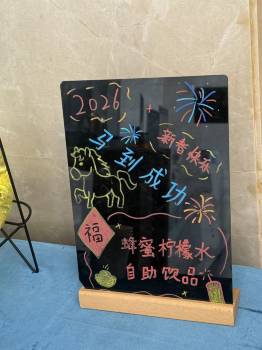 2026
新春快乐
马到成功
福
蜂蜜柠檬水
自助饮品